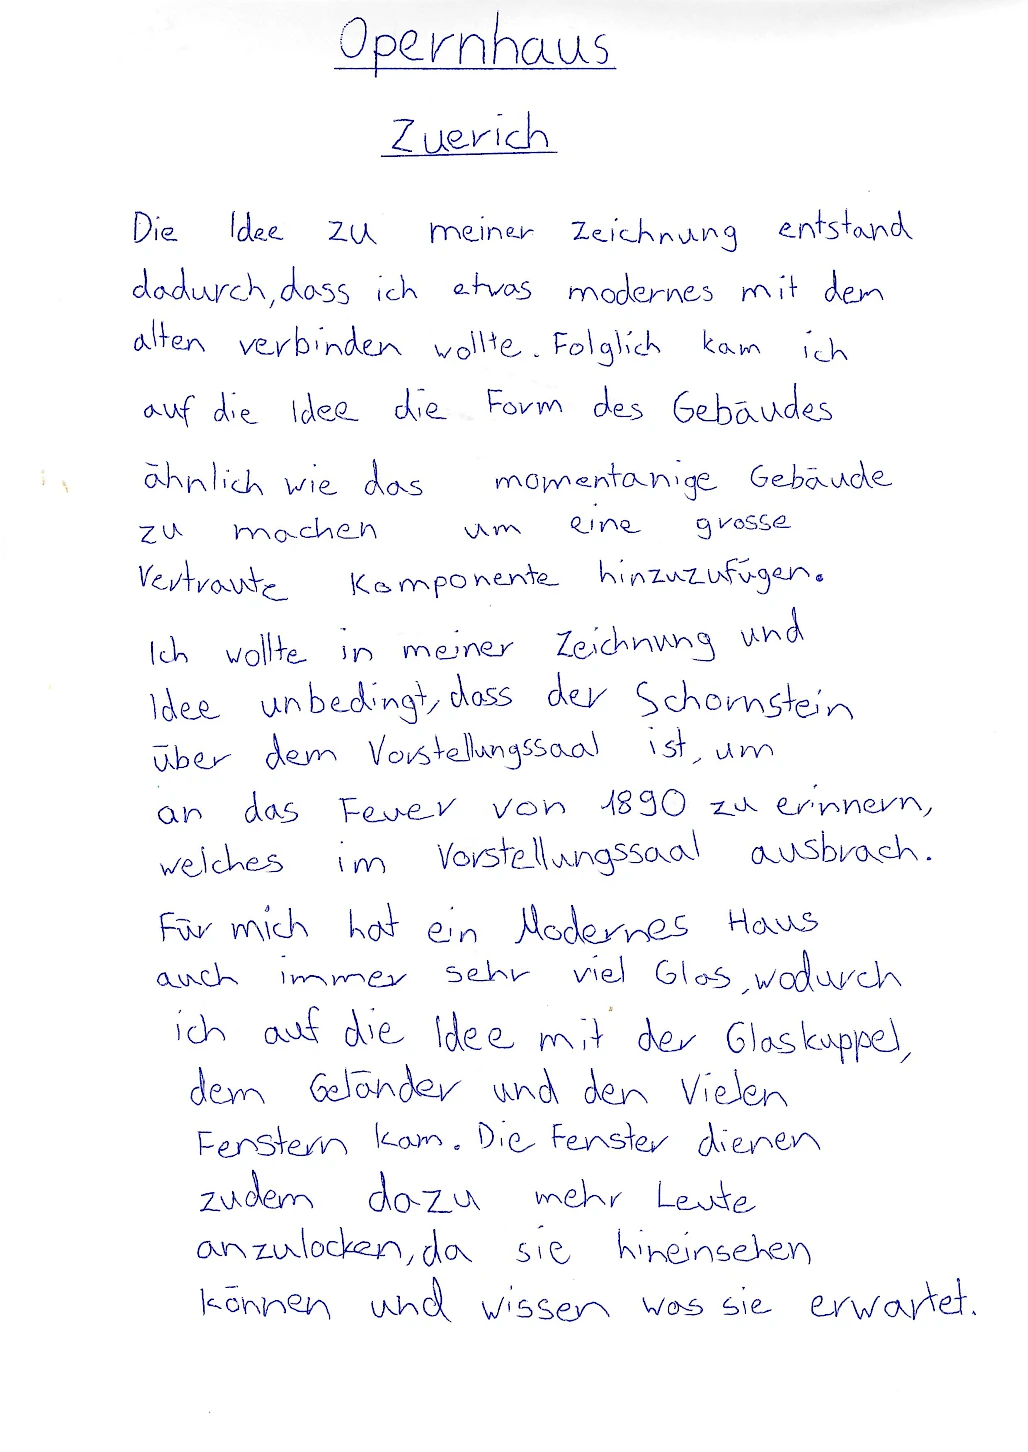 Opernhaus
Zuerich
Die Idee zu meiner Zeichnung entstand
dadurch, dass ich etwas modernes mit dem
alten verbinden wollte. Folglich kam ich
auf die Idee die Form des Gebäudes
ähnlich wie das momentanige Gebäude
zu machen um eine grosse
Vertraute Komponente hinzuzufügen.
Ich wollte in meiner Zeichnung und
Idee unbedingt, dass der Schornstein
über dem Vorstellungssaal ist, um
an das Feuer von 1890 zu erinnern,
welches im Vorstellungssaal ausbrach.
Für mich hat ein Modernes Haus
auch immer sehr viel Glas, wodurch
ich auf die Idee mit der Glaskuppel,
dem Geländer und den Vielen
Fenstern kam. Die Fenster dienen
zudem dazu mehr Leute
anzulocken, da sie hineinsehen
können und wissen was sie erwartet.